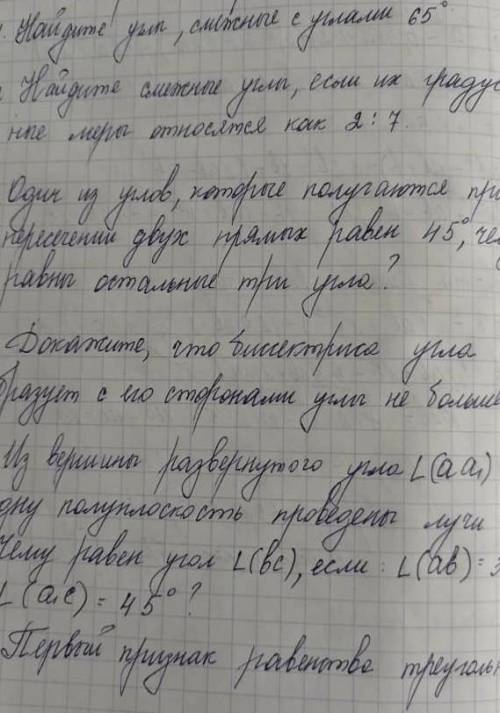 . Найдите углы, смежные с углами 65°
. Найдите смежные углы, если их градус-
ные меры относятся как 2:7.
Один из углов, которые получаются при
пересечении двух прямых равен 45°, че
равны остальные три угла?
Докажите, что биссектриса угла
бразует с его сторонами углы не больше
Из вершины развернутого угла L(aa₁)
одну полуплоскость проведены лучи
Чему равен угол L(bc), если: L(ab)=3
L(a₁c) = 45°?
Первый признак равенства треуголь